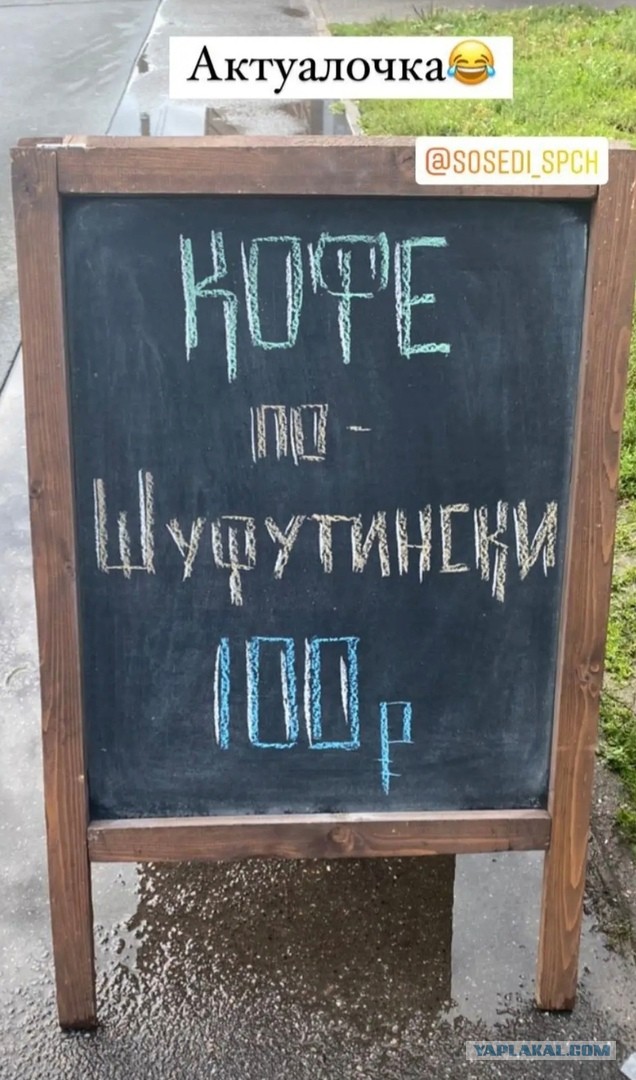 Актуалочка😂
@SOSEDI_SPCH
КОФЕ
ПО-
ШУФУТИНСКИ
100р
YAPLAKAL.COM